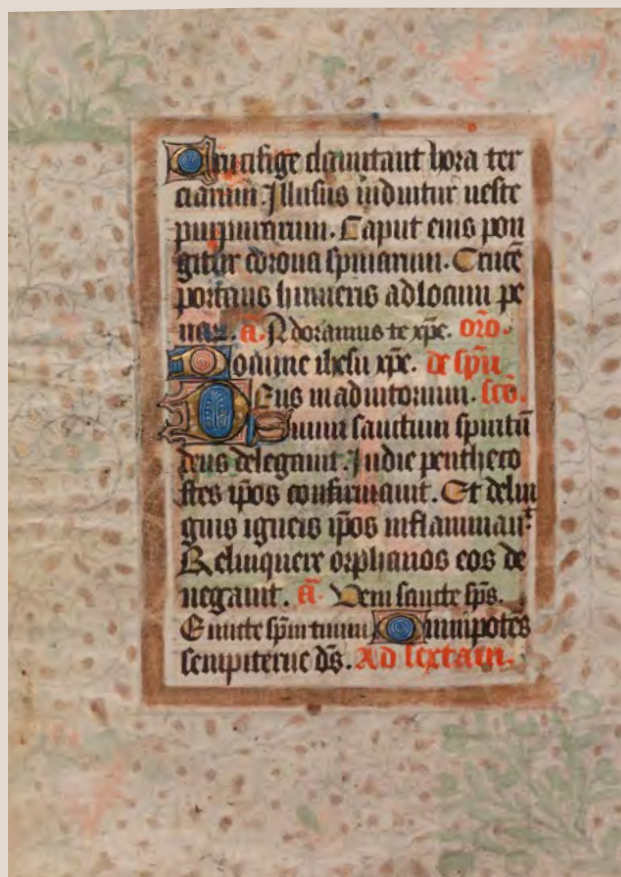 Crucifige clamitant hora ter
ciarum. Illusus induitur ueste
purpurarum. Caput eius pon
gitur corona spinarum. Crucē
portans humeris ad locum pe
narꝝ. a͞. Adoramus te xp̄e. or̄o.
Domine ihesu xp̄e. de sp̄u
Deus in adiutorium. sc̄o.
Suum sanctum spiritū
deus delegauit. In die pentheco
stes ip̄os confirmauit. Et de lin
guis igneis ip̄os inflammauit
Relinquere orphanos eos de
negauit. a͞. Veni sancte sp̄s.
Emitte sp̄m tuum Omnipotēs
sempiterne d̄s. Ad sextam.